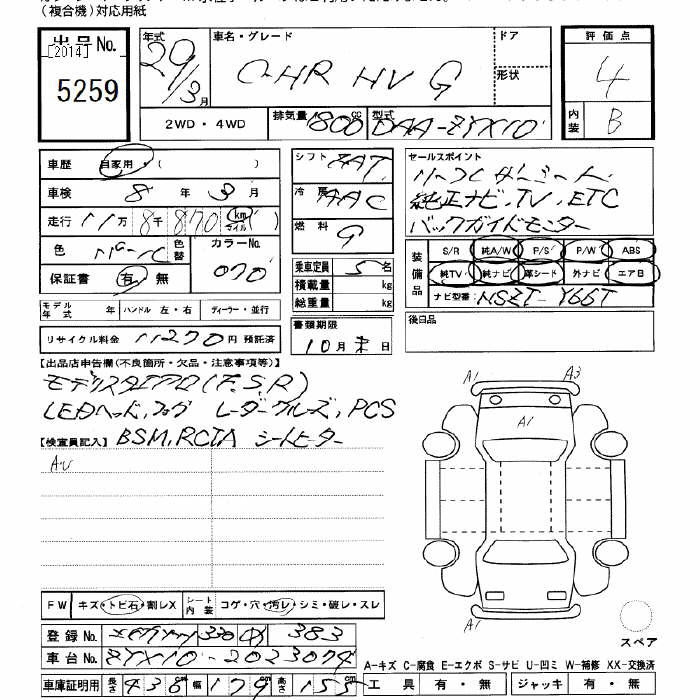 （複合機）対応用紙
出品No.
[2014]
5259
年式
29/3月
車名・グレード
C-HR HV G
ドア
形状
2WD・4WD
排気量 1800cc
型式 DAA-ZYX10
評価点
4
内装 B
車歴 自家用・( )
車検 8年3月
走行 11万8千870km マイル
色 パール 色替 カラーNo. 070
保証書 有・無
シフト FAT
冷房 AAC
燃料 G
乗車定員 5名
積載量 kg
総重量 kg
セールスポイント
純正ナビ,TV,ETC
バックガイドモニター
装備品
S/R 純A/W P/S P/W ABS
純TV 純ナビ 革シード 外ナビ エアB
ナビ型番 NSZT-Y66T
モデル年式 年 ハンドル 左・右 ディーラー・並行
リサイクル料金 11270円 預託済
書類期限
10月末日
後日品
【出品店申告欄(不良箇所・欠品・注意事項等)】
モデリスタエアロ(F.S.R)
LEDヘッド,フォグ レーダークルーズ,PCS
【検査員記入】 BSM,RCTA シートヒーター
AU
A1 A3
A1
A1
FW キズ・トビ石・割レX シート内装 コゲ・穴・汚レ・シミ・破レ・スレ
登録No. 330 383
車台No. ZYX10-2023074
スペア
A-キズ C-腐食 E-エクボ S-サビ U-凹ミ W-補修 XX-交換済
車庫証明用 長さ 436cm 幅 179 高さ 155cm
工具 有・無 ジャッキ 有・無